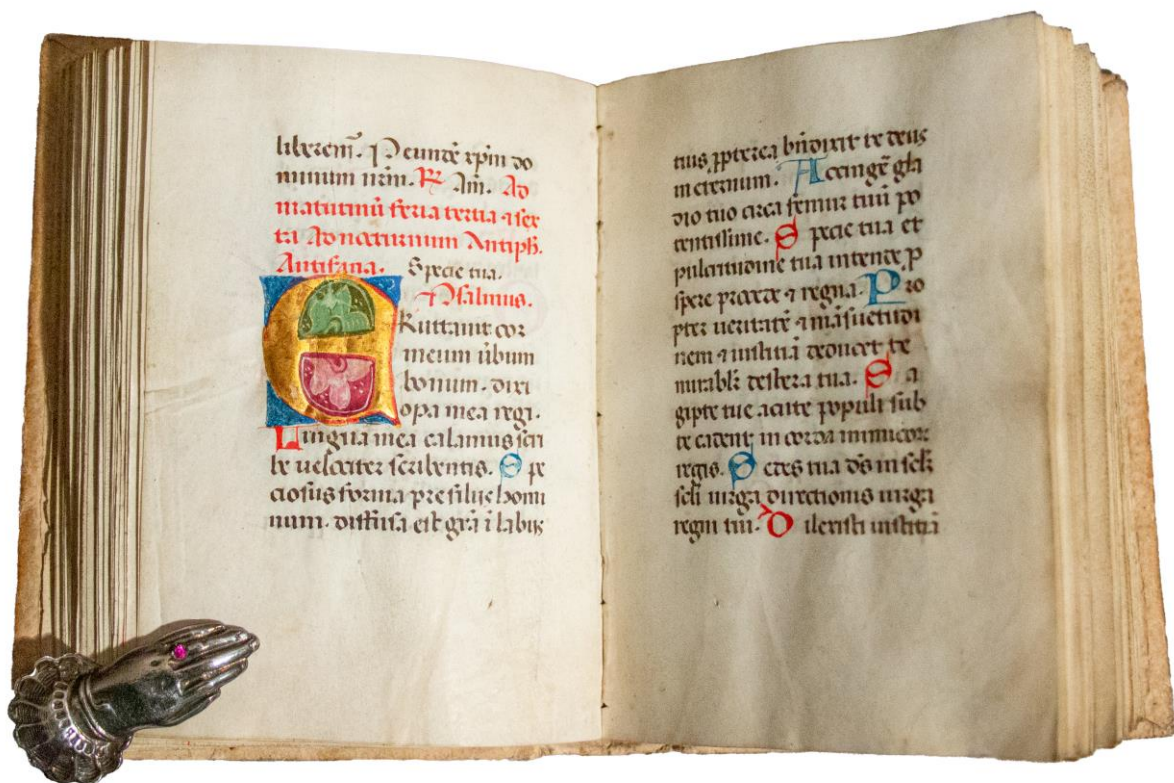 liberem̃. Per eundẽ xp̃m do
minum nr̃m. ℟ Am̃. Ad
matutinũ feria tertia ⁊ sex
ta Ad nocturnum Antiph̃.
Antifana. Specie tua.
Psalmus.
ERuttauit cor
meum ũbum
bonum. dixi
opa mea regi.
Lingua mea calamus scri
be uelociter scribentis. Spe
ciosus forma pre filijs homi
num. diffusa est gr̃a ĩ labijs
tuis ꝓpterea bñdixit te deus
in eternum. Accingẽ gla
dio tuo circa femur tuũ po
tentissime. Specie tua et
pulcritudine tua intende ꝓ
spere procede ⁊ regna. Pro
pter ueritatẽ ⁊ mãsuetudi
nem ⁊ iustitiã deducet te
mirabilr̃ dextera tua. Sa
gipte tue acute populi sub
te cadent in corda inimicoꝝ
regis. Sedes tua d̃s in sclm̃
scli uirga directionis uirga
regni tui. Dilexisti iustitiã